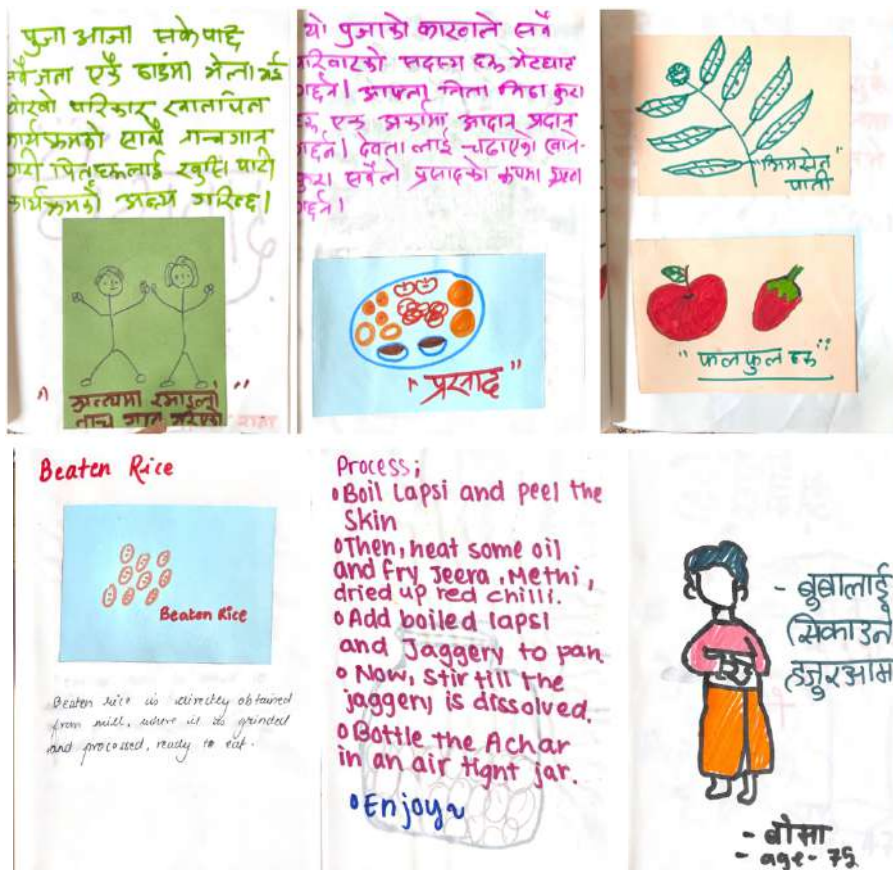 पुजा आजा सकेपछि
सबैजना एउटै ठाउँमा भेला भई
गरी पितृहरूलाई खुसि पारी
कार्यक्रमको अन्त्य गरिन्छ।
अन्त्यमा रमाइलो
नाच गान गरेको
यो पुजाको कारणले सबै
परिवारको सदस्य हरू भेटघाट
गर्छन्। आफ्ना मिठा मिठा कुरा
हरू एक अर्कामा आदान प्रदान
गर्छन्। देवता लाई चढाएको खाने-
कुरा सबैले प्रसादको रूपमा ग्रहण
गर्छन्।
"प्रसाद"
पाती
"फलफुल हरू"
Beaten Rice
Beaten Rice
Beaten rice is directley obtained
from mill, where it is grinded
and processed, ready to eat.
Process;
Boil Lapsi and peel the
Skin
Then, heat some oil
and fry Jeera, Methi,
dried up red chilli.
Add boiled lapsi
and Jaggery to pan.
Now, Stir till the
jaggery is dissolved.
Bottle the Achar
in an air tight jar.
Enjoy~
- बुबालाई
सिकाउने
हजुरआमा
- बोसा
- age- 75